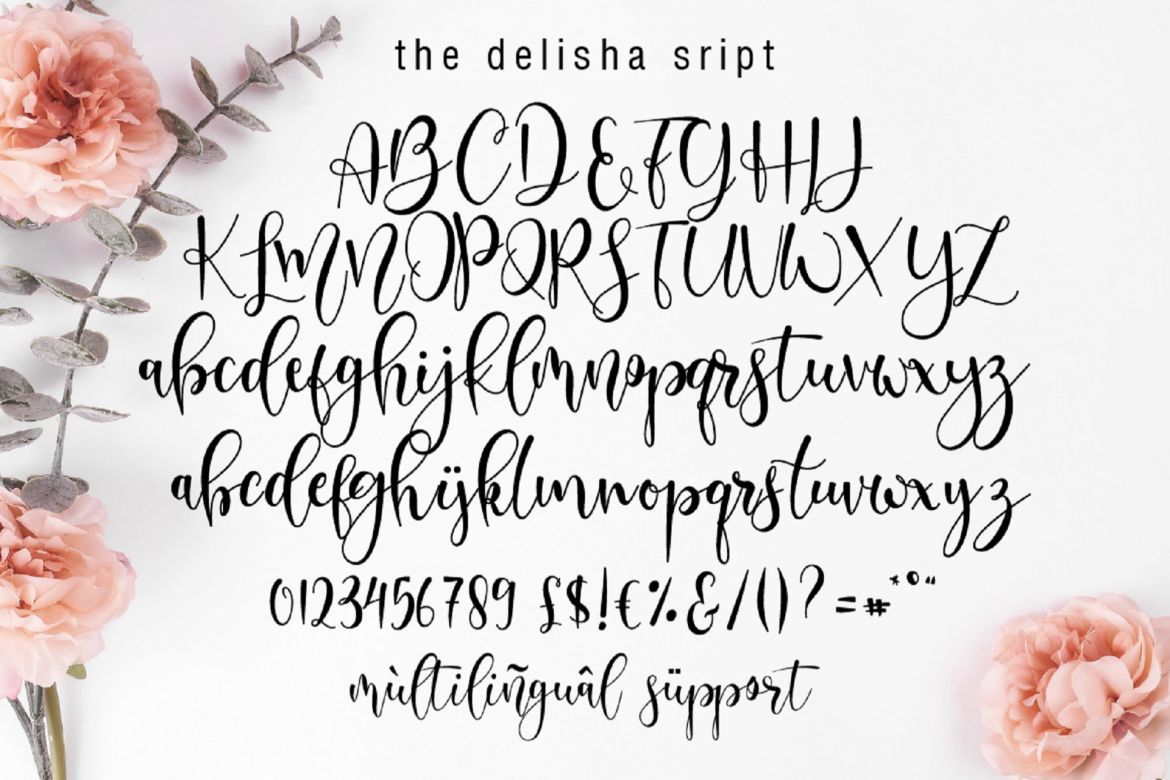 the delisha sript
ABCDEFGHIJ
KLMNOPQRSTUVWXYZ
abcdefghijklmnopqrstuvwxyz
abcdefghijklmnopqrstuvwxyz
0123456789 £$!€%&/()?=#*°“
mùltiliñguâl süpport